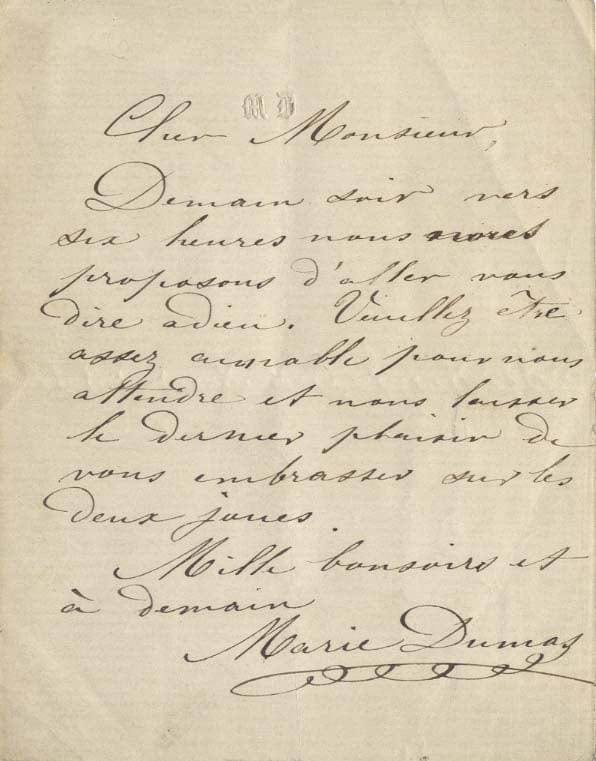 M D
Cher Monsieur,
Demain soir vers
six heures nous nous
proposons d'aller vous
dire adieu. Veuillez être
assez aimable pour nous
attendre et nous laisser
le dernier plaisir de
vous embrasser sur les
deux joues.
Mille bonsoirs et
à demain
Marie Dumas